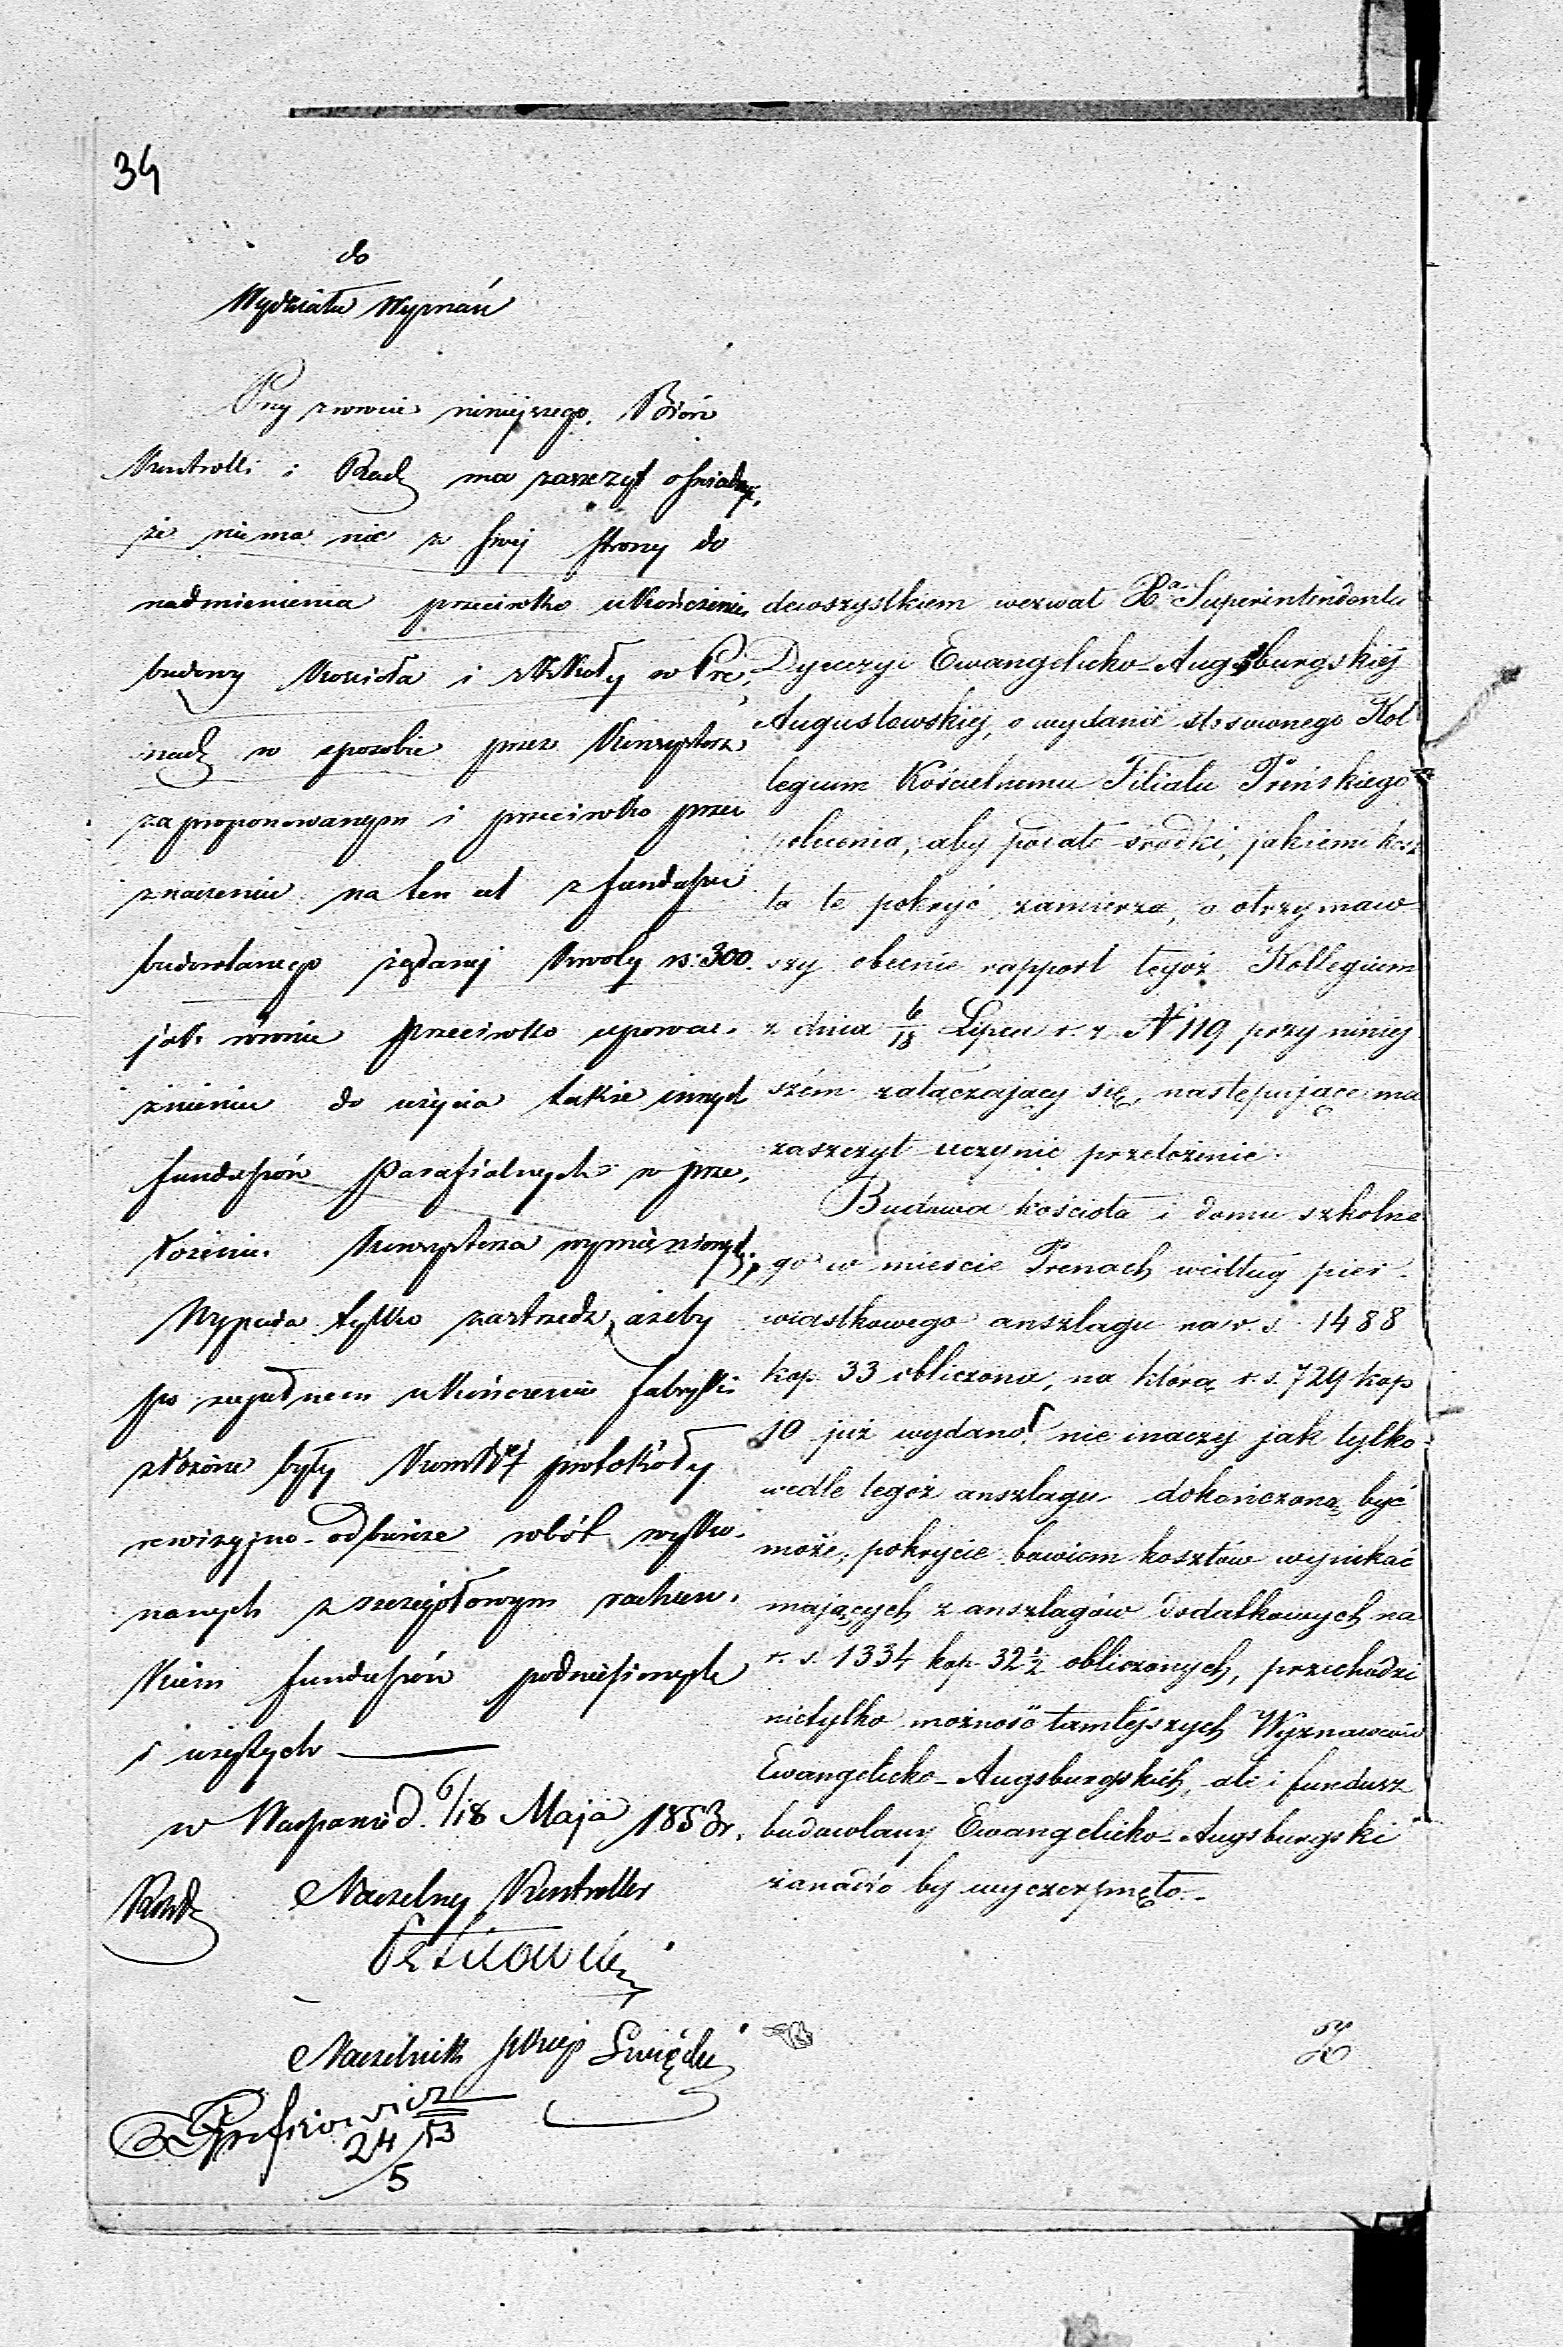 34
do
Wydziału Wyznań
Przy zwrocie niniejszego, Bióro
Kontrolli i Rach ma zaszczyt oświadczyć,
że niema nic z swej strony do
nadmienienia przeciwko ukończeniu
budowy kościoła i szkoły w Pre,
nach w sposobie przez Konsystorz
zaproponowanym i przeciwko prze
znaczeniu na ten cel z funduszu
budowlanego żądanej kwoty rs: 300.
jak równie przeciwko upoważ.
nieniu do użycia także innych
funduszów parafialnych w prze,
łożeniu Konsystorza wymienionych;
Wypada tylko zastrzedz, ażeby
po zupełnem ukończeniu fabryki
złożone były protokóły
rewizyjno-odbiorcze robót wyko.
nanych z szczegółowym rachun.
kiem funduszów podniesionych
i użytych
w Warszawie d. 6/18 Maja 1853 r.
Naczelny Kontroller
Naczelnik Sekcyi
24/5 53
dewszystkiem wezwał Xa Superintendenta
Dyecezyi Ewangelicko-Augsburgskiéj
Augustowskiej, o wydanie stosownego Kol
legium Kościelnemu Filiału Preńskiego
polecenia, aby podało środki, jakiemi kosz
ta te pokryć zamierza, a otrzymaw
szy obecnie rapport tegoż Kollegium
z dnia 6/18 Lipca r. z. N 119 przy niniej
szém załączający się, następujące ma
zaszczyt uczynić przełożenie.
Budowa kościoła i domu szkolne
go w mieście Prenach według pier
wiastkowego anszlagu na r. s. 1488
kop. 33 obliczona, na którą r. s. 729 kop
10 już wydano, nie inaczej jak tylko
wedle tegoż anszlagu dokończoną być
może, pokrycie bowiem kosztów wynikać
mających z anszlagów dodatkowych na
r. s. 1334 kop. 32½ obliczonych, przechodzi
nietylko możność tamtejszych Wyznawców
Ewangelicko-Augsburgskich, ale i fundusz
budowlany Ewangelicko-Augsburgski
zanadto by wyczerpnęło.-